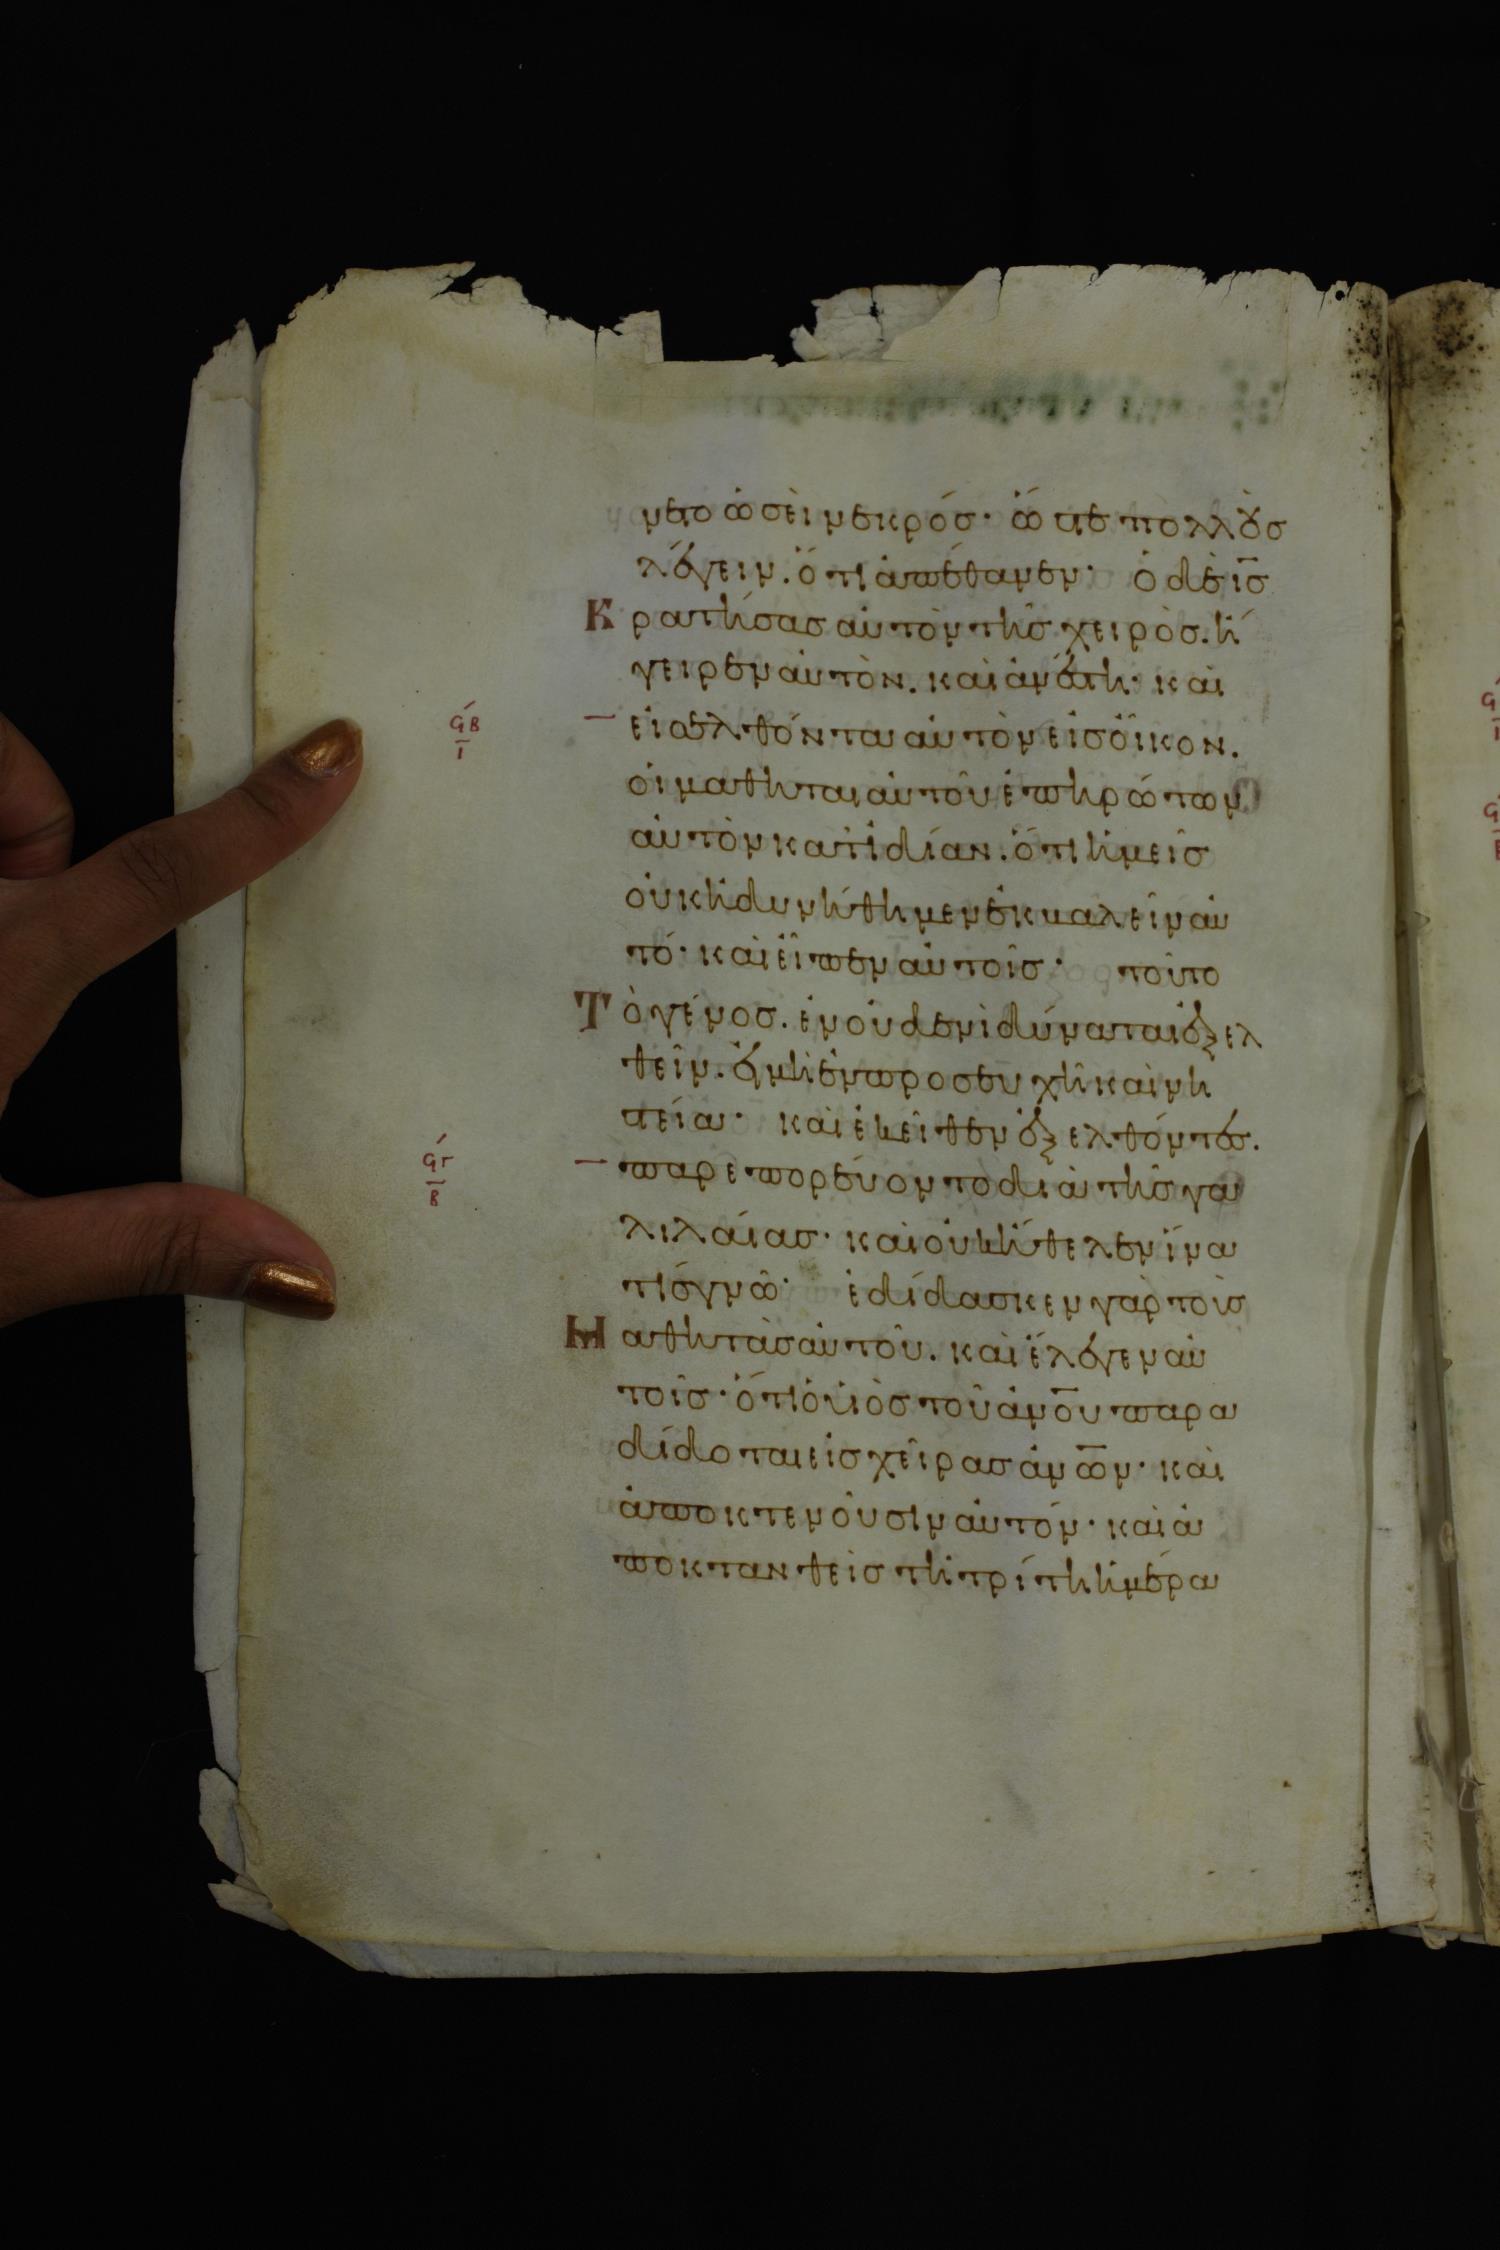 νετο ὡσεὶ νεκρός· ὥστε πολλοὺς
λέγειν. ὅτι ἀπέθανεν· ὁ δὲ ις̅
Κρατήσας αὐτὸν τῆς χειρὸς. ἤ
γειρεν αὐτὸν. καὶ ἀνέστη· καὶ
ϟβ
ι
εἰσελθόντα αὐτὸν εἰς οἶκον.
οἱ μαθηταὶ αὐτοῦ ἐπηρώτων
αὐτὸν κατιδίαν. ὅτι ἡμεῖς
οὐκ ἠδυνήθημεν ἐκβαλεῖν αὐ
τό· καὶ εἶπεν αὐτοῖς· τοῦτο
Τὸ γένος. ἐν οὐδενὶ δύναται ἐξελ
θεῖν. εἰ μὴ ἐν προσευχῆ καὶ νη
στεία· καὶ ἐκεῖθεν ἐξελθόντες.
ϟγ
β
παρεπορεύοντο διὰ τῆς γα
λιλαίας· καὶ οὐκ ἤθελεν ἵνα
τὶς γνῶ· ἐδίδασκεν γὰρ τοὺς
Μαθητὰς αὐτοῦ. καὶ ἔλεγεν αὐ
τοῖς· ὅτι ὁ υἱὸς τοῦ ἀν̅ου παρα
δίδοται εἰς χεῖρας ἀν̅ων· καὶ
ἀποκτενοῦσιν αὐτόν· καὶ ἀ
ποκτανθεὶς τῆ τρίτη ἡμέρα